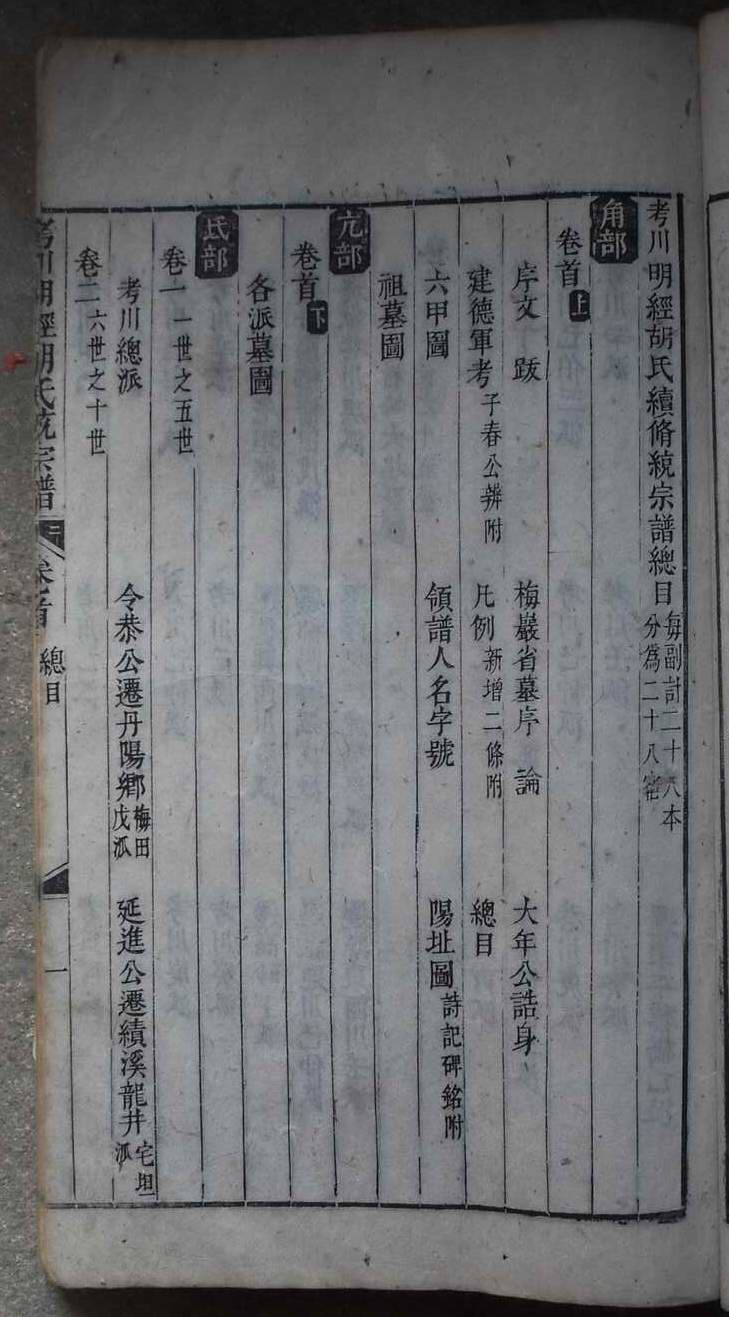 考川明經胡氏續脩統宗譜總目 每副計二十八本 分為二十八宿
角部
卷首上
序文 跋 梅巖省墓序 論 大年公誥身
建德軍考 子春公辨附 凡例 新增二條附 總目
六甲圖 領譜人名字號 陽址圖 詩記碑銘附
祖墓圖
亢部
卷首下
各派墓圖
氐部
卷一 一世之五世
考川總派 令恭公遷丹陽鄉 梅田戊派 延進公遷績溪龍井 宅坦派
卷二 六世之十世
考川明經胡氏統宗譜 卷首 總目 一